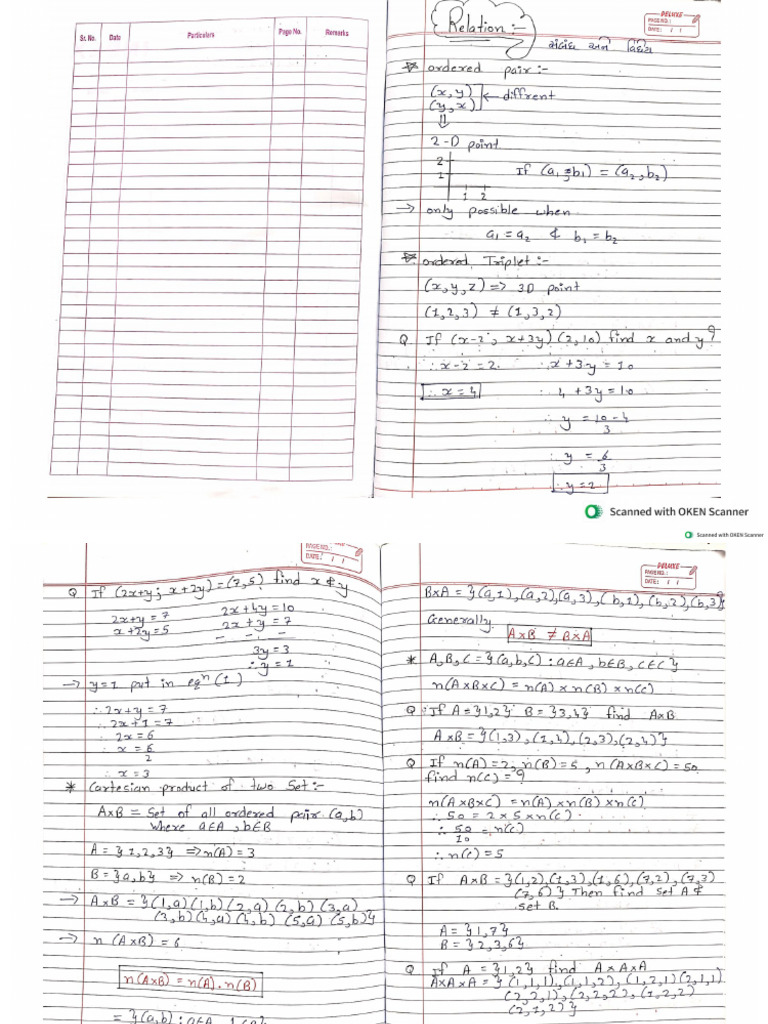 Sr. No. Date Particulars Page No. Remarks
DELUXE
PAGE NO.:
DATE: / /
Relation :-
સંબંધ અને વિધેય
ordered pair :-
(x,y)
(y,x) ← diffrent
⇓
2-D point
2
1
1 2
If (a₁, b₁) = (a₂, b₂)
→ only possible when
a₁ = a₂ & b₁ = b₂
ordered Triplet :-
(x,y,z) => 3D point
(1,2,3) ≠ (1,3,2)
Q If (x-2, x+3y) (2,10) find x and y?
∴ x-2 = 2 ∴ x+3y = 10
∴ x = 4 ∴ 4 + 3y = 10
∴ y = 10-4
3
∴ y = 6
3
∴ y = 2
Scanned with OKEN Scanner
Scanned with OKEN Scanner
PAGE NO.:
DATE: / /
Q If (2x+y, x+2y) = (7,5) find x & y
2x+y = 7 2x + 4y = 10
x+2y = 5 2x + y = 7
- - -
3y = 3
∴ y = 1
→ y=1 put in eqⁿ (1)
∴ 2x+y = 7
∴ 2x+1 = 7
∴ 2x = 6
∴ x = 6
2
∴ x = 3
* Cartesian product of two Set :-
A×B = Set of all ordered pair (a,b)
where a∈A, b∈B
A = {1,2,3} => n(A) = 3
B = {a,b} => n(B) = 2
→ A×B = {(1,a)(1,b)(2,a)(2,b)(3,a)
(3,b)(4,a)(4,b)(5,a)(5,b)}
→ n(A×B) = 6
n(A×B) = n(A).n(B)
DELUXE
PAGE NO.:
DATE: / /
B×A = {(a,1),(a,2),(a,3),(b,1),(b,2),(b,3)}
Generally
A×B ≠ B×A
* A,B,C = {(a,b,c) : a∈A, b∈B, c∈C}
n(A×B×C) = n(A) × n(B) × n(C)
Q: If A = {1,2} B = {3,4} find A×B
A×B = {(1,3),(1,4),(2,3),(2,4)}
Q If n(A)=2, n(B)=5, n(A×B×C)=50
find n(C) = ?
n(A×B×C) = n(A)×n(B)×n(C)
∴ 50 = 2 × 5 × n(C)
∴ 50 = n(C)
10
∴ n(C) = 5
Q If A×B = {(1,2),(1,3),(1,6),(7,2),(7,3)
(7,6)} Then find set A &
set B.
A = {1,7}
B = {2,3,6}
Q If A = {1,2} find A×A×A
A×A×A = {(1,1,1),(1,1,2),(1,2,1)(2,1,1)
(2,2,1),(2,2,2),(1,2,2)
(2,1,2)}